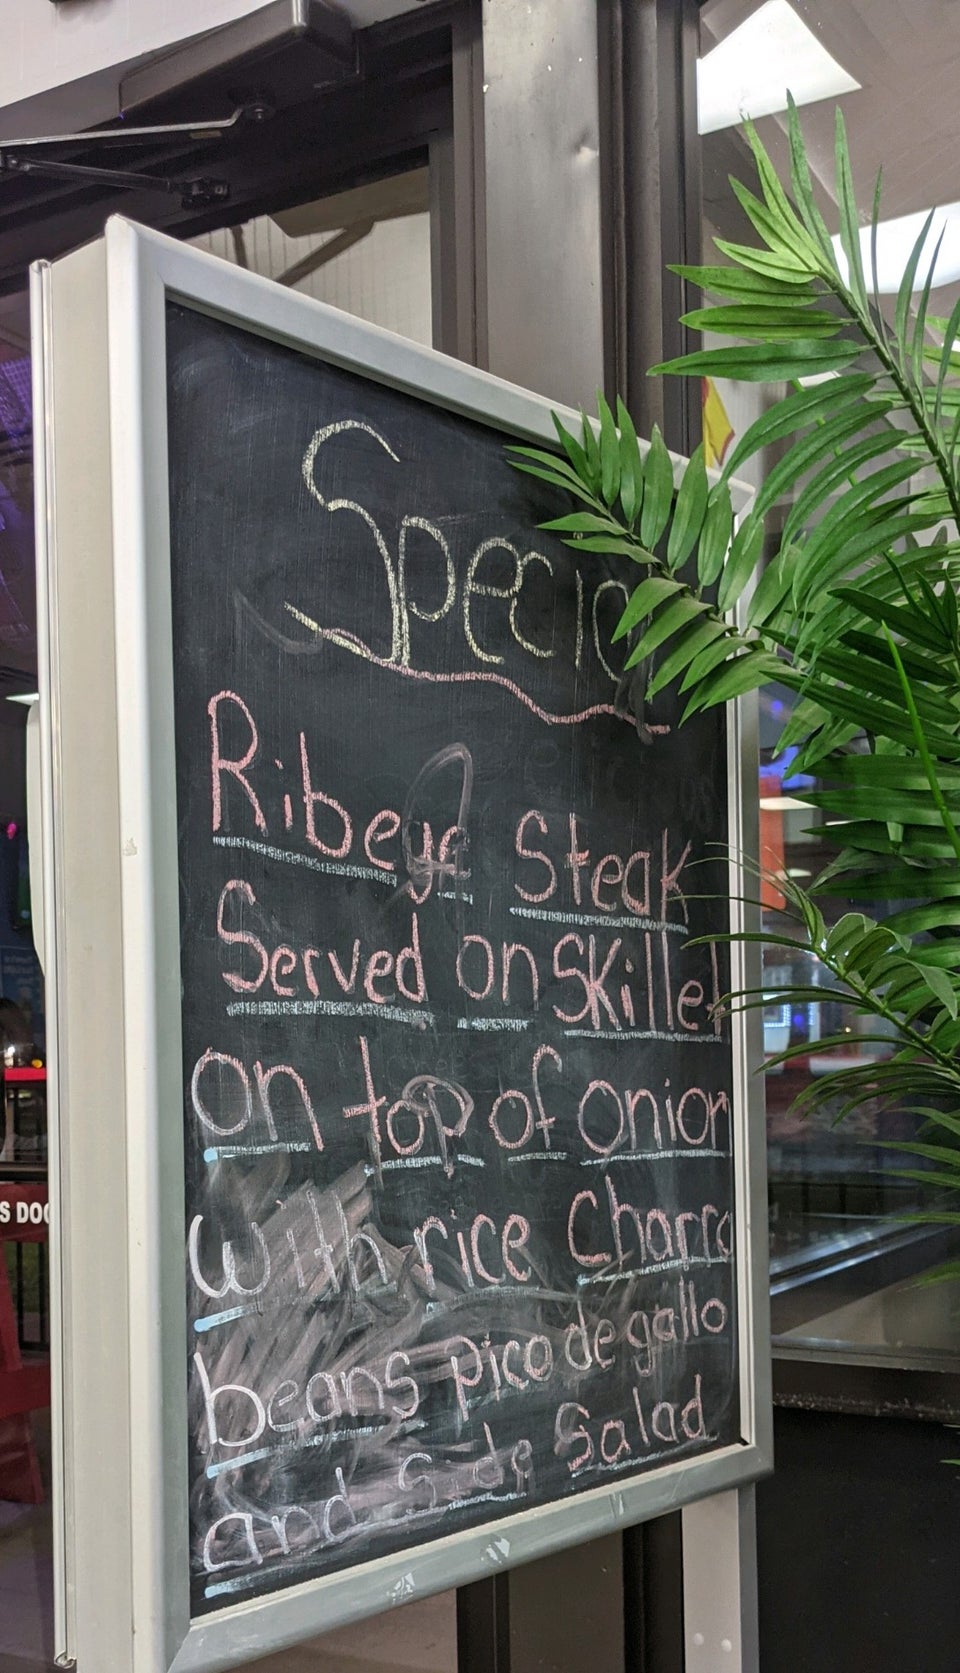 Special
Ribeye Steak
Served on Skillet
on top of onion
with rice Charro
beans pico de gallo
and Side Salad
S DOG